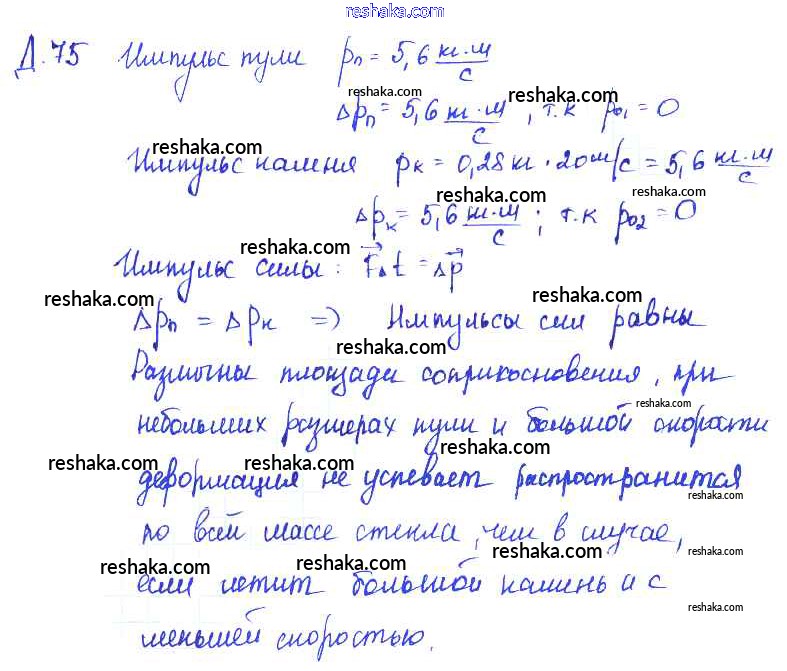 reshaka.com
Д.75 Импульс пули pп = 5,6 кг·м/с
reshaka.com reshaka.com
Δpп = 5,6 кг·м/с, т.к p₀₁ = 0
reshaka.com
Импульс камня pк = 0,28 кг · 20 м/с = 5,6 кг·м/с
reshaka.com reshaka.com
Δpк = 5,6 кг·м/с; т.к p₀₂ = 0
reshaka.com
Импульс силы: F⃗Δt = Δp⃗
reshaka.com reshaka.com
Δpп = Δpк => Импульсы сил равны
reshaka.com
Различны площади соприкосновения, при
reshaka.com
небольших размерах пули и большой скорости
reshaka.com
reshaka.com reshaka.com
деформация не успевает распространится
reshaka.com
по всей массе стекла, чем в случае,
reshaka.com reshaka.com reshaka.com reshaka.com
если летит большой камень и с
reshaka.com
меньшей скоростью.